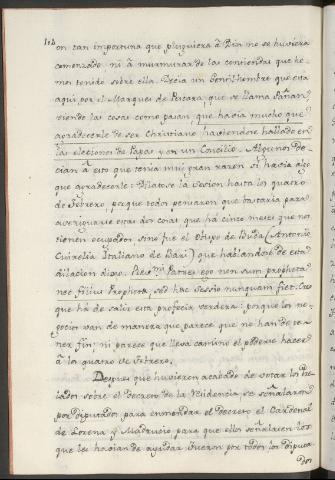 104
on tan importuna que pluguiera à Dios no se huviera
comenzado, ni à murmurar de las contiendas que he-
mos tenido sobre ella. Decia un Gentilhombre que esta
aqui por el Marques de Pescara, que se llama
viendo las cosas como pasan, que havia mucho que
agradecerle de ser Christiano haviendose hallado en
las elecciones de Papas y en un Concilio. Algunos de-
cian à esto que tenia muy gran razon si havia algo
que agradecerle. Dilatose la sesion hasta los quatro
de Febrero, porque todos pensaron que bastaria para
averiguarse estas dos cosas que hà cinco meses que nos
tienen ocupados sino fue el Obispo de Buda (Antonio
Italiano de Bari) que hablandose de esta
dilacion dixo. Patres ego non sum propheta
nec filius Prophetæ, sed hæc sessio nunquam fiet. Creo
que hà de salir esta profecia verdadera porque los ne-
gocios van de manera que parece que no han de te-
ner fin, ni parece que lleva camino el poderse hacer
à los quatro de Febrero.
Despues que huvieron acabado de votar los Pre-
lados sobre el Decreto de la Residencia se señalaron
por Diputados para enmendar el Decreto el Cardenal
de Lorena y Madrucio para que ellos señalasen los
que les havian de ayudar. Fueron por todos los diputa-
dos